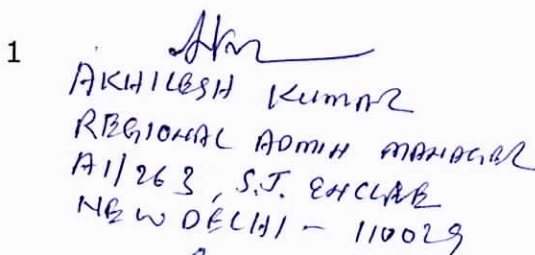 1
AKHILESH KUMAR
REGIONAL ADMIN MANAGER
A1/263, S.J. ENCLAVE
NEW DELHI - 110029